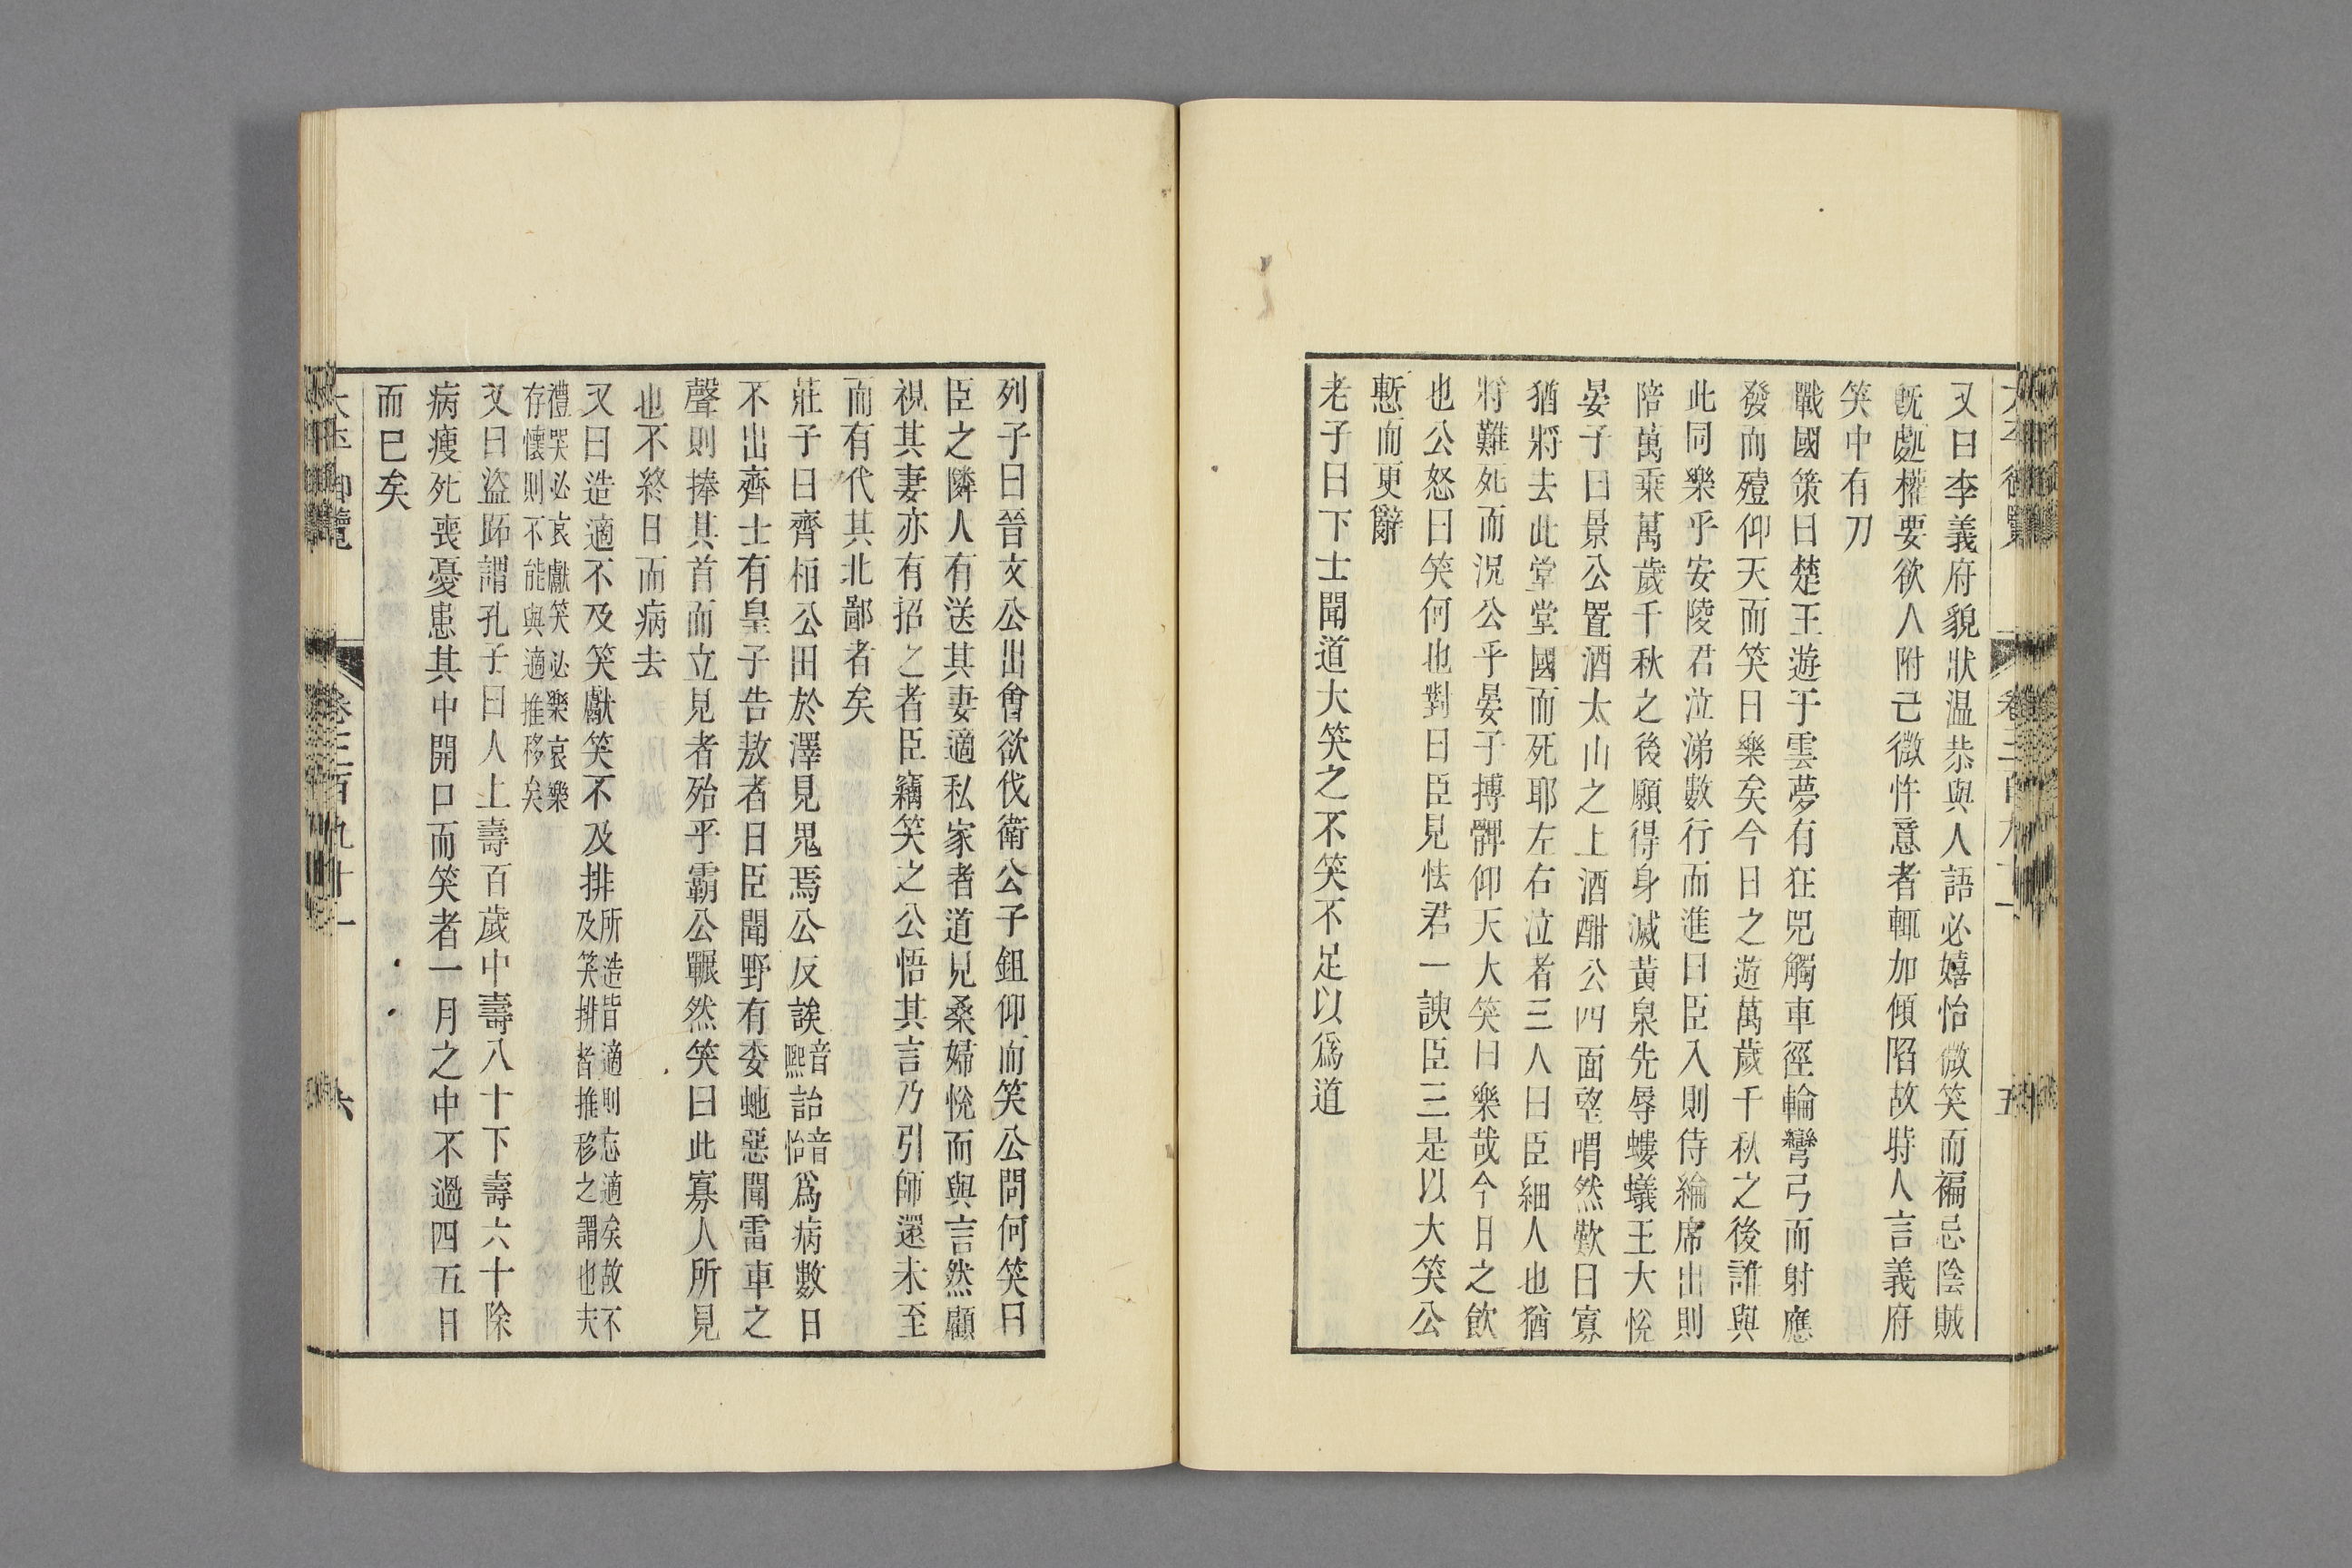 又曰李義府貌狀温恭與人語必嬉怡微笑而褊忌陰賊
旣處權要欲人附己微忤意者輒加傾陷故時人言義府
笑中有刀
戰國策曰楚王遊于雲夢有狂兕觸車徑輪彎弓而射應
發而殪仰天而笑曰樂矣今日之遊萬歲千秋之後誰與
此同樂乎安陵君泣涕數行而進曰臣入則侍綸席出則
陪萬乘萬歲千秋之後願得身滅黃泉先辱螻蟻王大悅
晏子曰景公置酒太山之上酒酣公四面望喟然歎曰寡
猶將去此堂堂國而死耶左右泣者三人曰臣細人也猶
將難死而況公乎晏子搏髀仰天大笑曰樂哉今日之飲
也公怒曰笑何也對曰臣見怯君一諛臣三是以大笑公
慙而更辭
老子曰下士聞道大笑之不笑不足以爲道
列子曰晉文公出會欲伐衛公子鉏仰而笑公問何笑曰
臣之隣人有送其妻適私家者道見桑婦悅而與言然顧
視其妻亦有招之者臣竊笑之公悟其言乃引師還未至
而有代其北鄙者矣
莊子曰齊桓公田於澤見鬼焉公反誒音熙詒音怡爲病數日
不出齊士有皇子告敖者曰臣聞野有委虵惡聞雷車之
聲則捧其首而立見者殆乎霸公囅然笑曰此寡人所見
也不終日而病去
又曰造適不及笑獻笑不及排所造皆適則忘適矣故不及笑排者推移之謂也夫
禮哭必哀獻笑必樂哀樂存懷則不能與適推移矣
又曰盜跖謂孔子曰人上壽百歲中壽八十下壽六十除
病瘦死喪憂患其中開口而笑者一月之中不過四五日
而巳矣
卷三百九十一
六